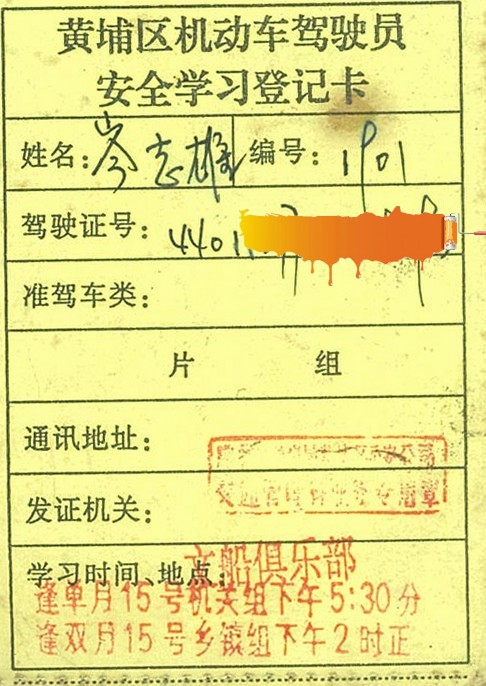 黄埔区机动车驾驶员
安全学习登记卡
姓名：岑志雄 编号：1901
驾驶证号：4401
准驾车类：
片 组
通讯地址：
专用章
发证机关：
学习时间、地点：文船俱乐部
逢单月15号机关组下午5:30分
逢双月15号乡镇组下午2时正